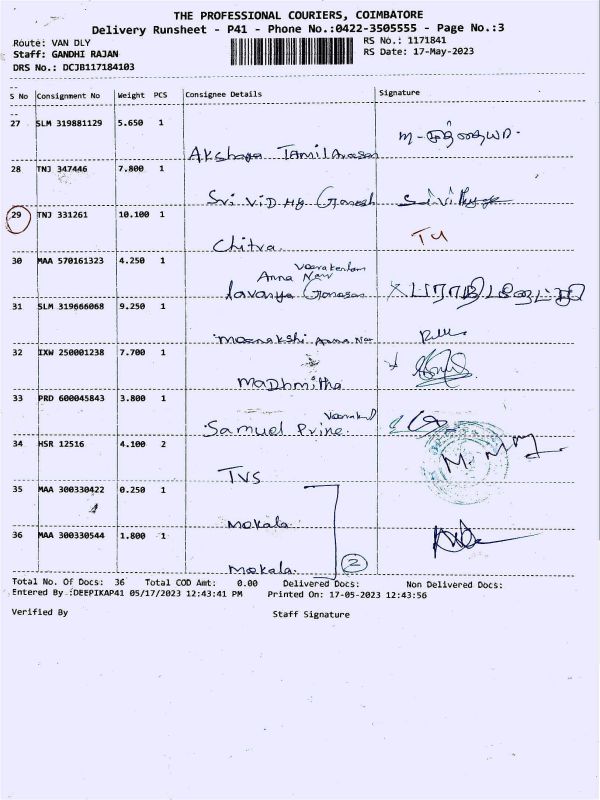 THE PROFESSIONAL COURIERS, COIMBATORE
Delivery Runsheet - P41 - Phone No.:0422-3505555 - Page No.:3
Route: VAN DLY RS No.: 1171841
Staff: GANDHI RAJAN RS Date: 17-May-2023
DRS No.: DCJB117184103
S No Consignment No Weight PCS Consignee Details Signature
27 SLM 319881129 5.650 1
Akshaya Tamilarasan
28 TNJ 347446 7.800 1
Sri Vidhy Ganesh
29 TNJ 331261 10.100 1
Chitra.
30 MAA 570161323 4.250 1
Anna Naw
lavanya Ganesan
31 SLM 319666068 9.250 1
meenakshi Anna Nar
32 IXW 250001238 7.700 1
Madhmitha
33 PRD 600045843 3.800 1
Samuel Prine.
34 HSR 12516 4.100 2
TVS
35 MAA 300330422 0.250 1
Mokala
36 MAA 300330544 1.800 1
Mokala. 2
Total No. Of Docs: 36 Total COD Amt: 0.00 Delivered Docs: Non Delivered Docs:
Entered By :DEEPIKAP41 05/17/2023 12:43:41 PM Printed On: 17-05-2023 12:43:56
Verified By Staff Signature